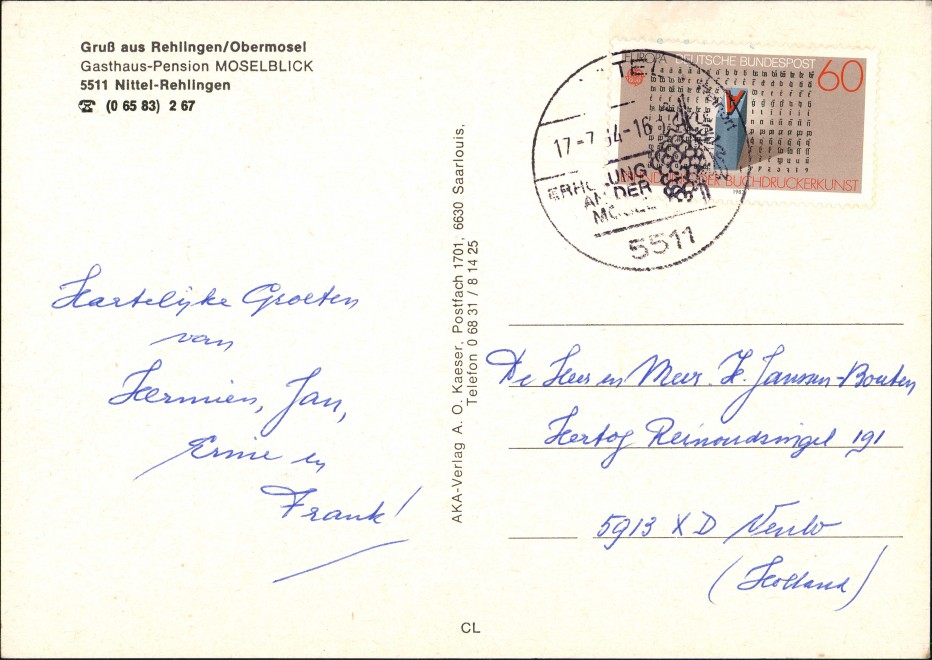 Gruß aus Rehlingen/Obermosel
Gasthaus-Pension MOSELBLICK
5511 Nittel-Rehlingen
☎ (0 65 83) 2 67
Hartelijke Groeten
van
Hermien, Jan,
Ernie en
Frank!
AKA-Verlag A. O. Kaeser, Postfach 1701, 6630 Saarlouis,
Telefon 0 68 31 / 8 14 25
CL
EUROPA DEUTSCHE BUNDESPOST 60
BUCHDRUCKERKUNST
17-7 84-16
ERHOLUNG
AN DER
MOSEL
5511
De Heer en Mevr. H. Janssen-Bouten
Hertog Reinoudsingel 191
5913 XD Venlo
(Holland)